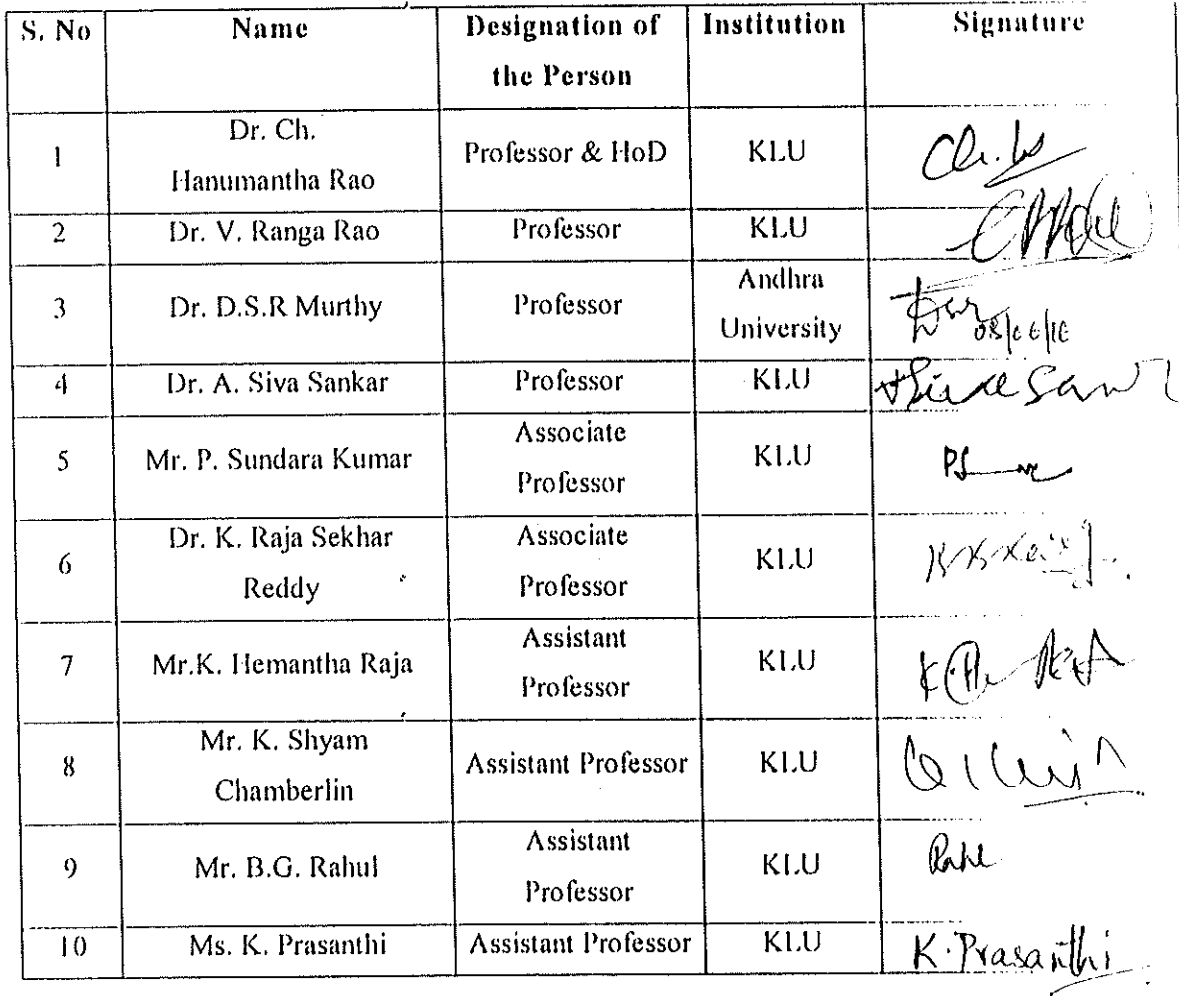 S. No Name Designation of the Person Institution Signature
1 Dr. Ch. Hanumantha Rao Professor & HoD KLU
2 Dr. V. Ranga Rao Professor KLU
3 Dr. D.S.R Murthy Professor Andhra University
4 Dr. A. Siva Sankar Professor KLU
5 Mr. P. Sundara Kumar Associate Professor KLU
6 Dr. K. Raja Sekhar Reddy Associate Professor KLU
7 Mr.K. Hemantha Raja Assistant Professor KLU
8 Mr. K. Shyam Chamberlin Assistant Professor KLU
9 Mr. B.G. Rahul Assistant Professor KLU
10 Ms. K. Prasanthi Assistant Professor KLU K. Prasanthi